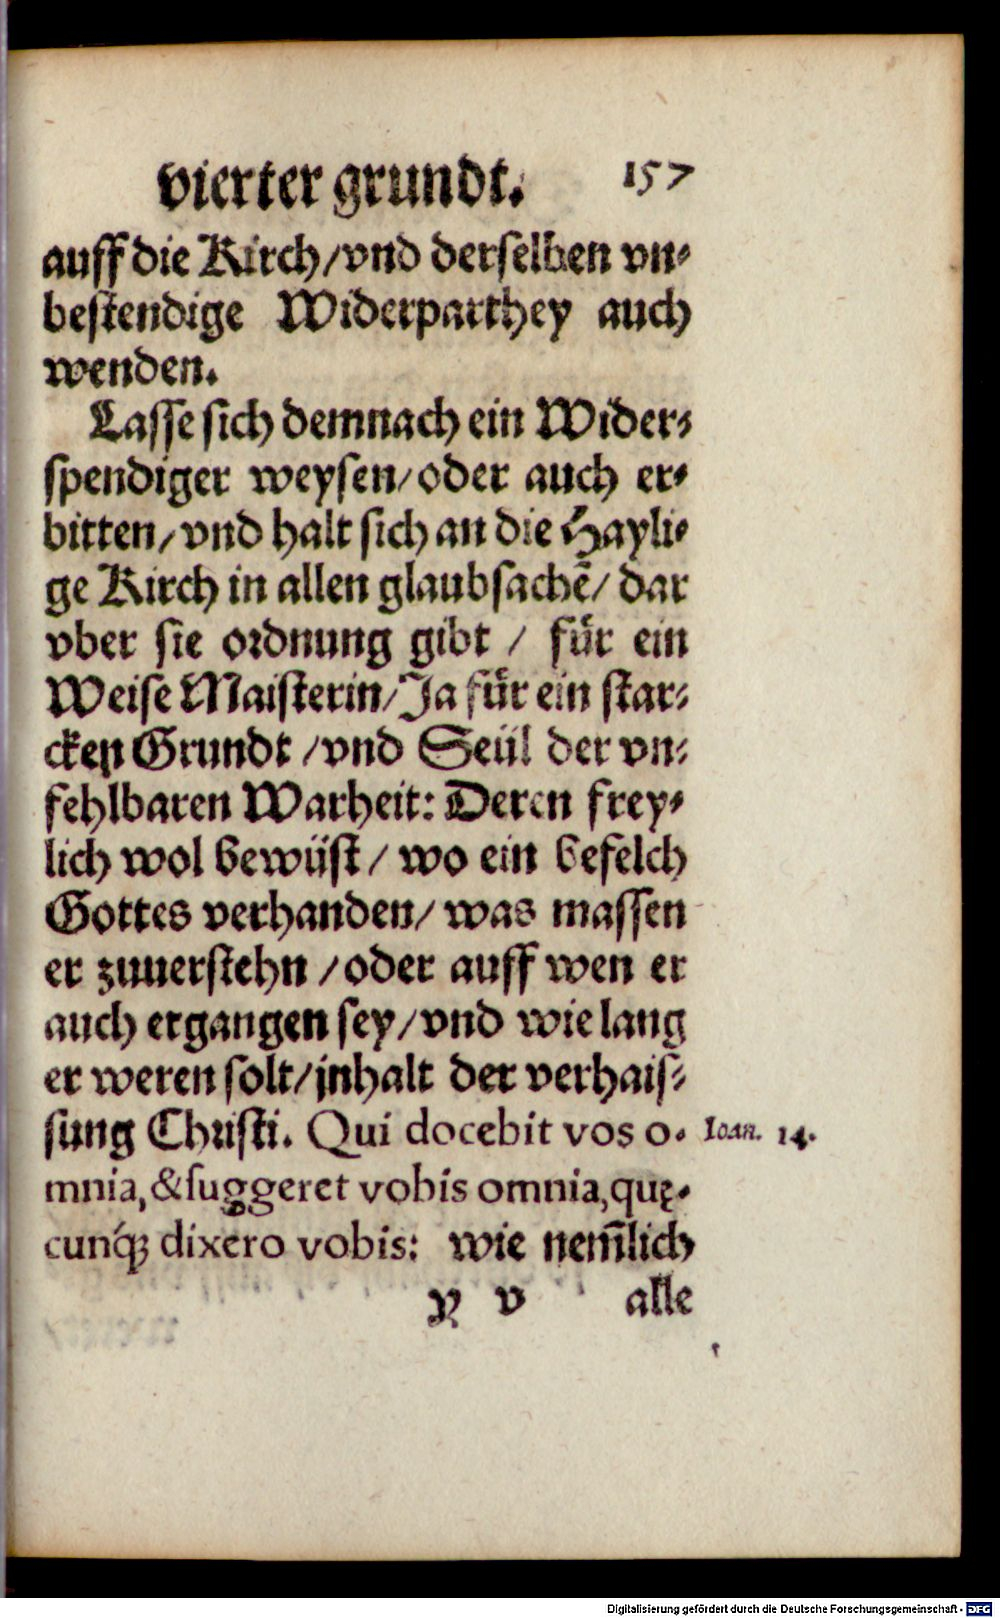 vierter grundt. 157
auff die Kirch/vnd derselben vn-
bestendige Widerparthey auch
wenden.
Lasse sich demnach ein Wider-
spendiger weysen/oder auch er-
bitten/vnd halt sich an die Hayli-
ge Kirch in allen glaubsachē/ dar
vber sie ordnung gibt / für ein
Weise Maisterin/Ja für ein star-
cken Grundt /vnd Seül der vn-
fehlbaren Warheit: Deren frey-
lich wol bewüst/ wo ein befelch
Gottes verhanden/ was massen
er zuuerstehn /oder auff wen er
auch ergangen sey/vnd wie lang
er weren solt/jnhalt der verhais-
sung Christi. Qui docebit vos o- Ioan. 14.
mnia,&suggeret vobis omnia,quę-
cunq́; dixero vobis: wie nem̄lich
Y v alle
Digitalisierung gefördert durch die Deutsche Forschungsgemeinschaft - DFG